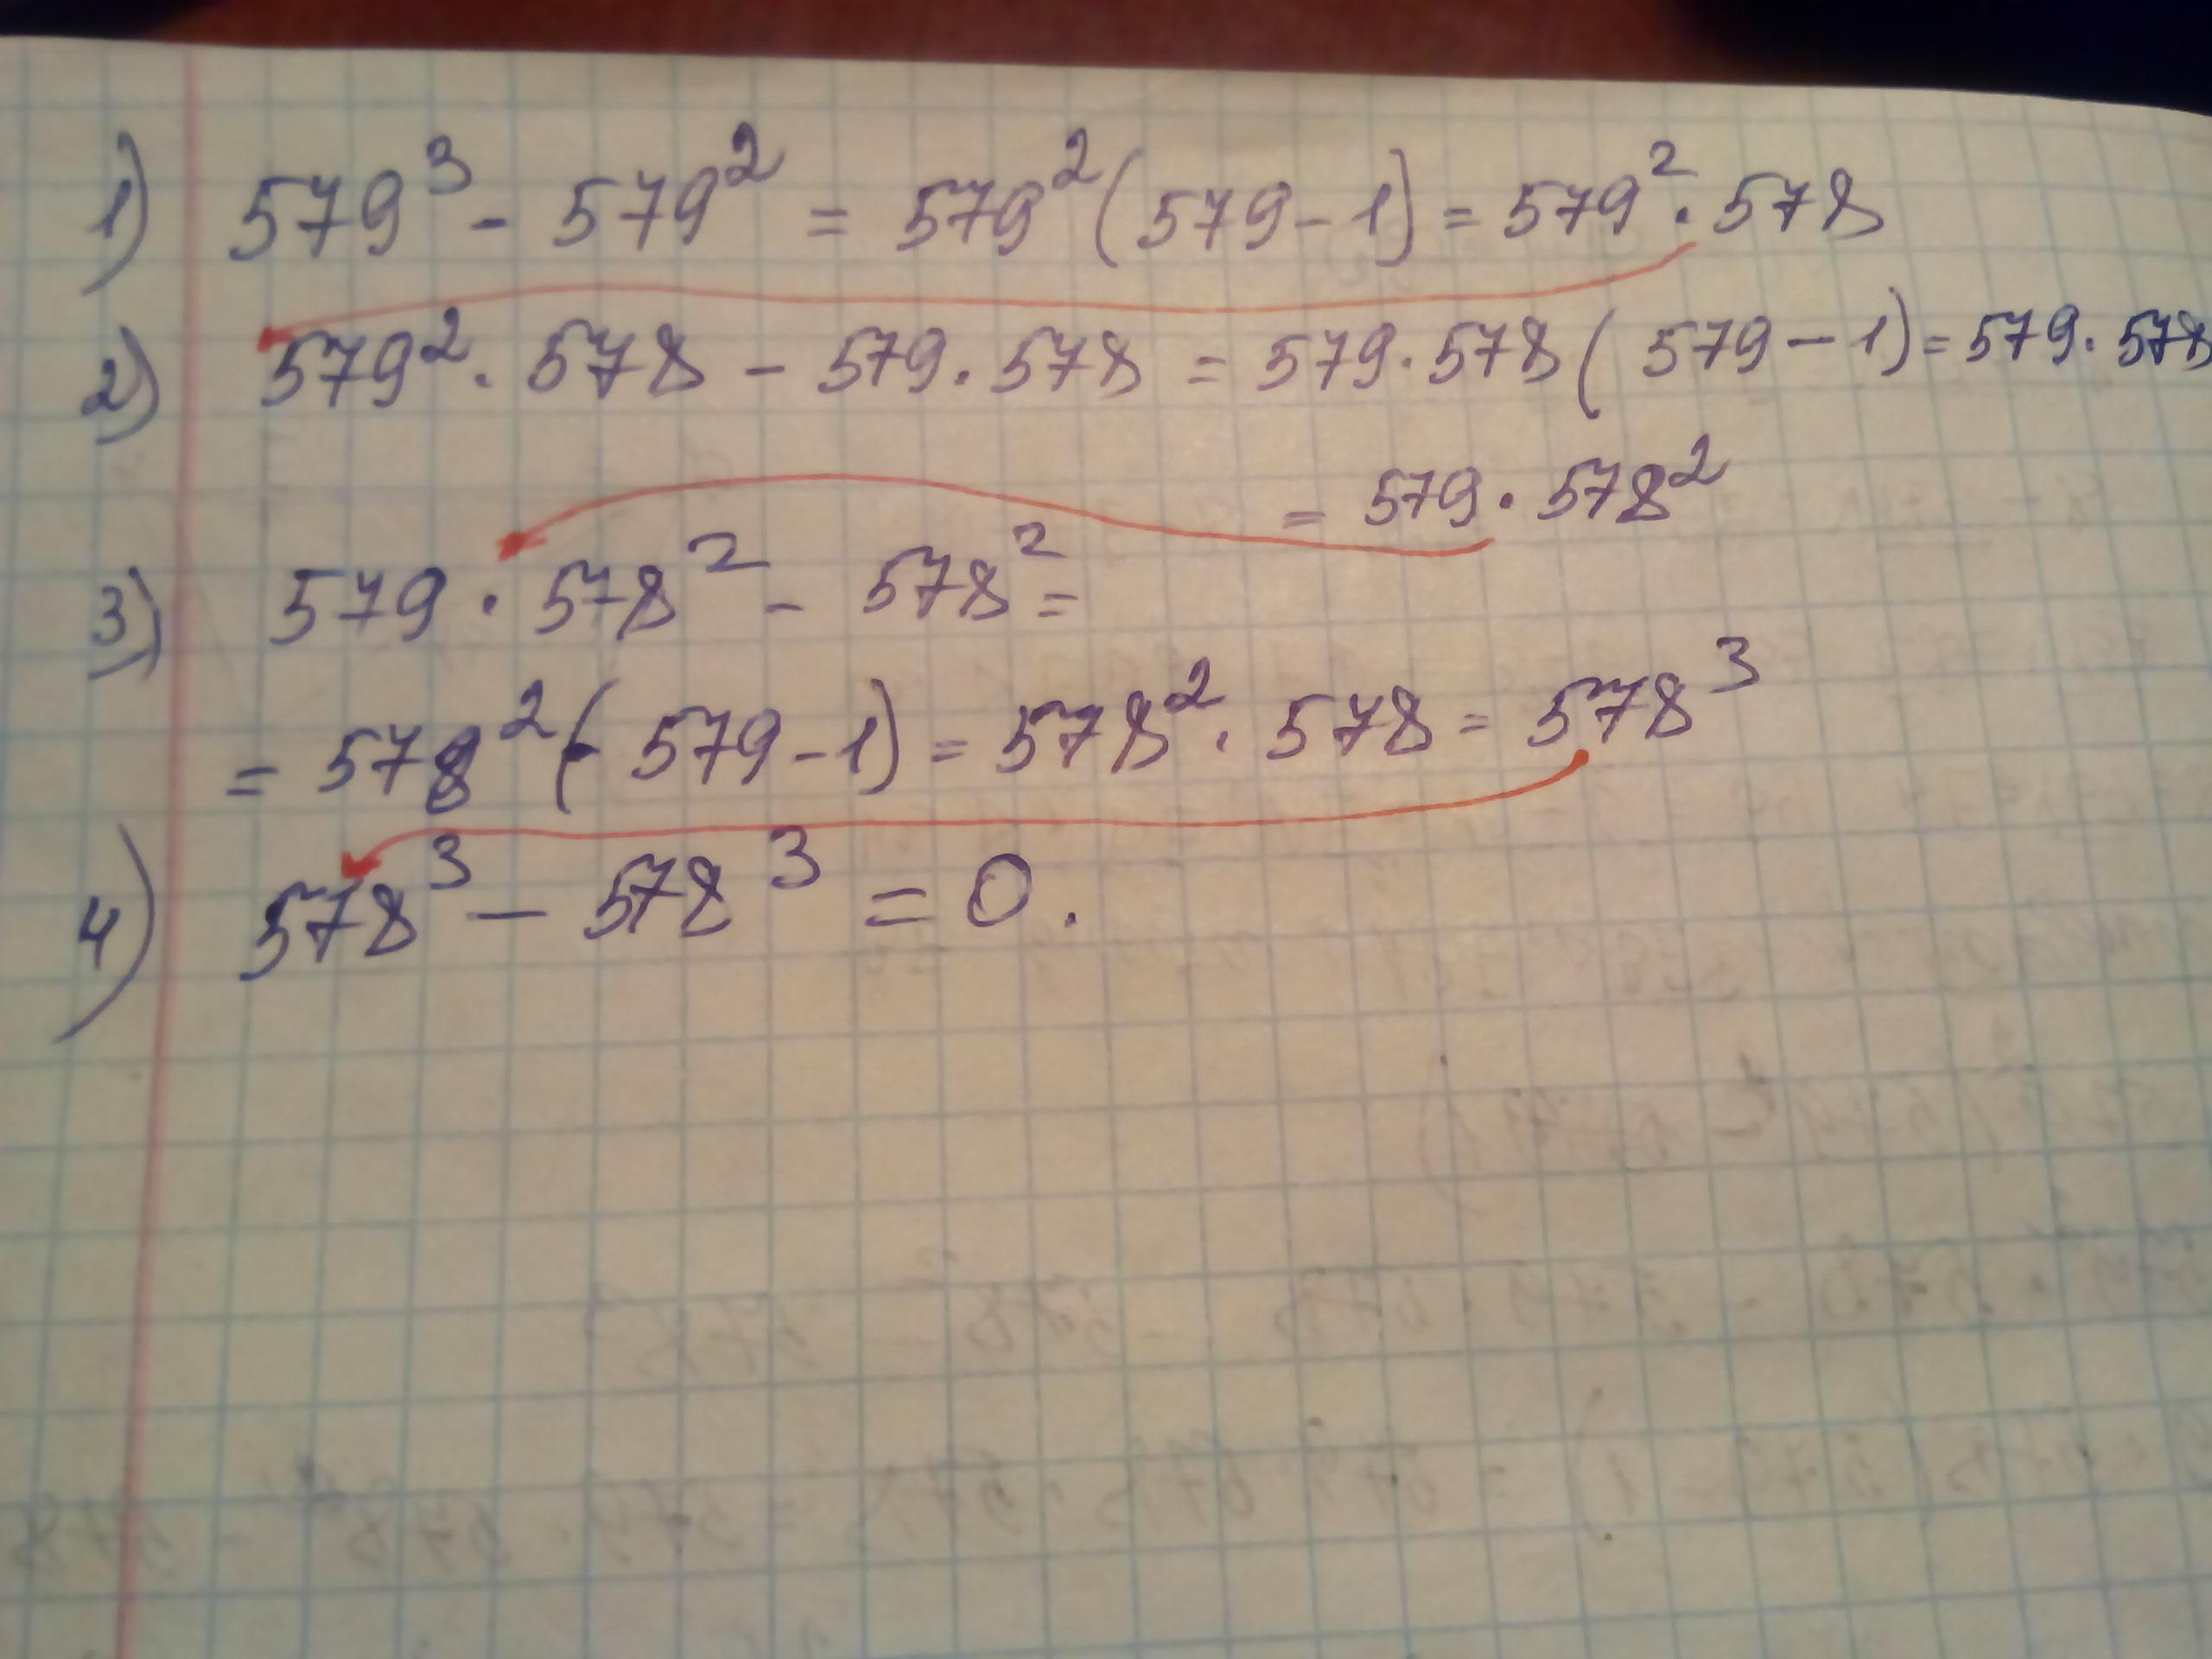 1) 579³ - 579² = 579²(579 - 1) = 579² · 578
2) 579² · 578 - 579 · 578 = 579 · 578(579 - 1) = 579 · 578
= 579 · 578²
3) 579 · 578² - 578² =
= 578²(579 - 1) = 578² · 578 = 578³
4) 578³ - 578³ = 0.